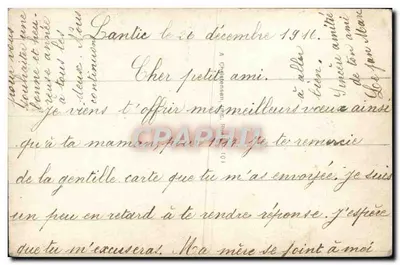 Lantic le 20 décembre 1911.
Cher petit ami.
Je viens t'offrir mes meilleurs vœux ainsi
qu'à ta maman pour 1912. Je te remercie
de la gentille carte que tu m'as envoyée. je suis
un peu en retard à te rendre réponse. J'espère
que tu m'excuseras. Ma mère se joint à moi
pour vous
souhaiter une
bonne et heu-
reuse année
à tous les
deux. Nous
continuons
à aller
bien.
Sincère amitié
de ton ami
Jean Marc